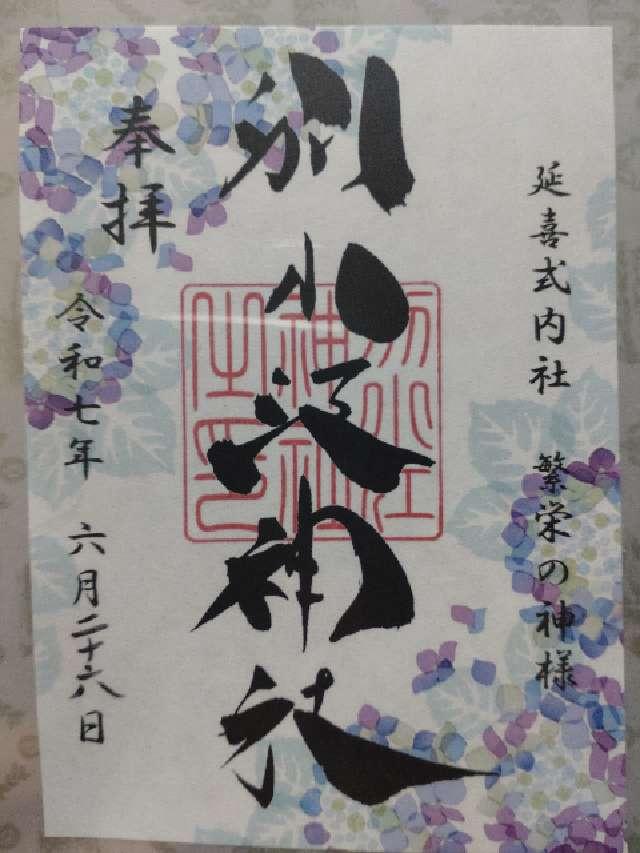 延喜式内社 繁栄の神様
別小江神社
奉拝
令和七年 六月二十六日
別小江
神社
之印